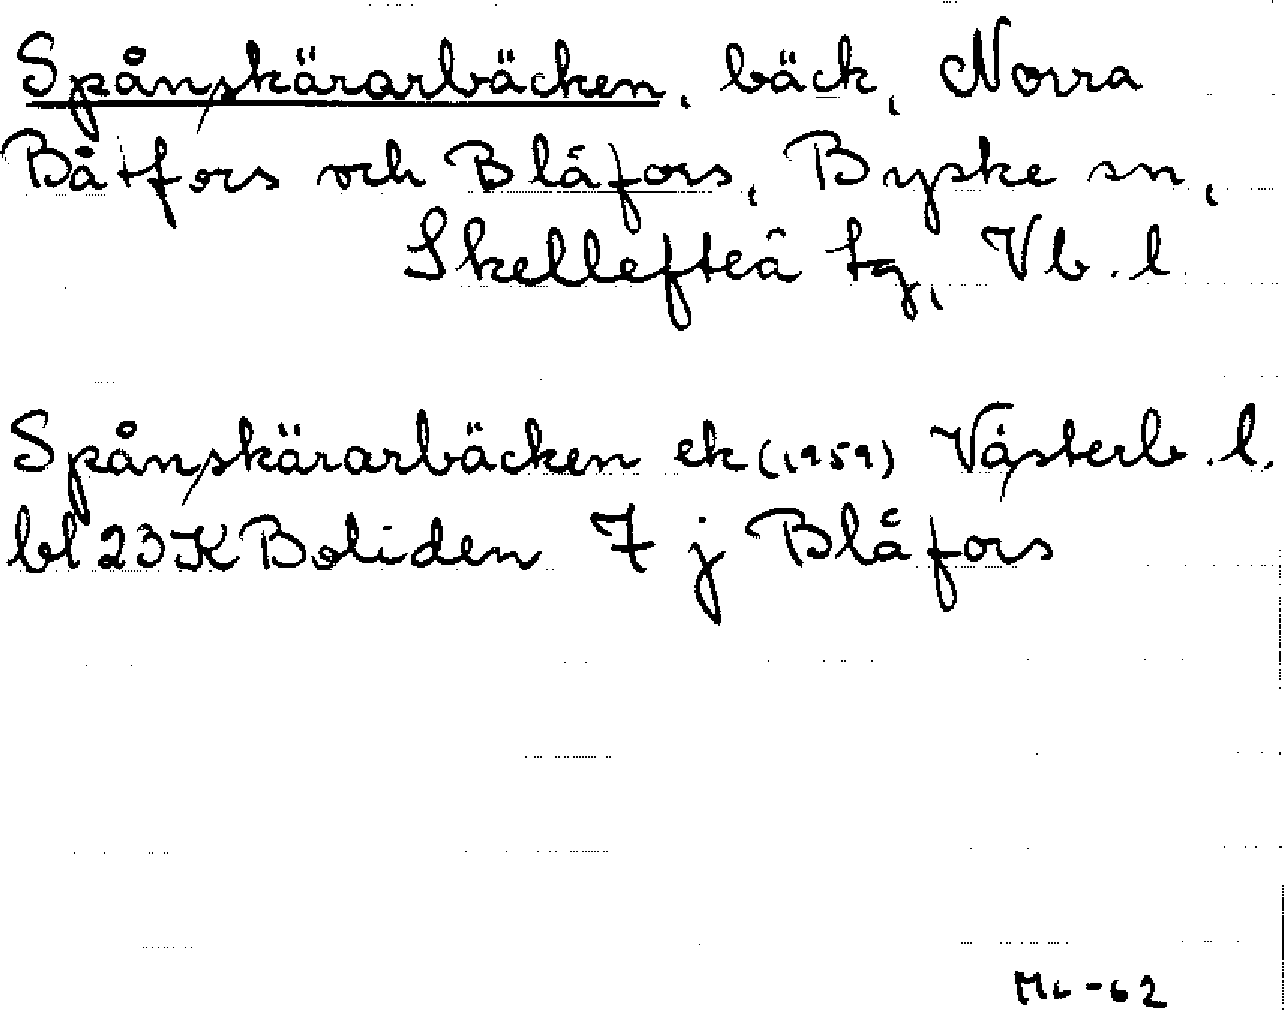 Spånskärarbäcken, bäck, Norra
Båtfors och Blåfors, Byske sn,
Skellefteå tg, Vb. l
Spånskärarbäcken ek (1959) Västerb. l.
bl 23K Boliden 7 j Blåfors